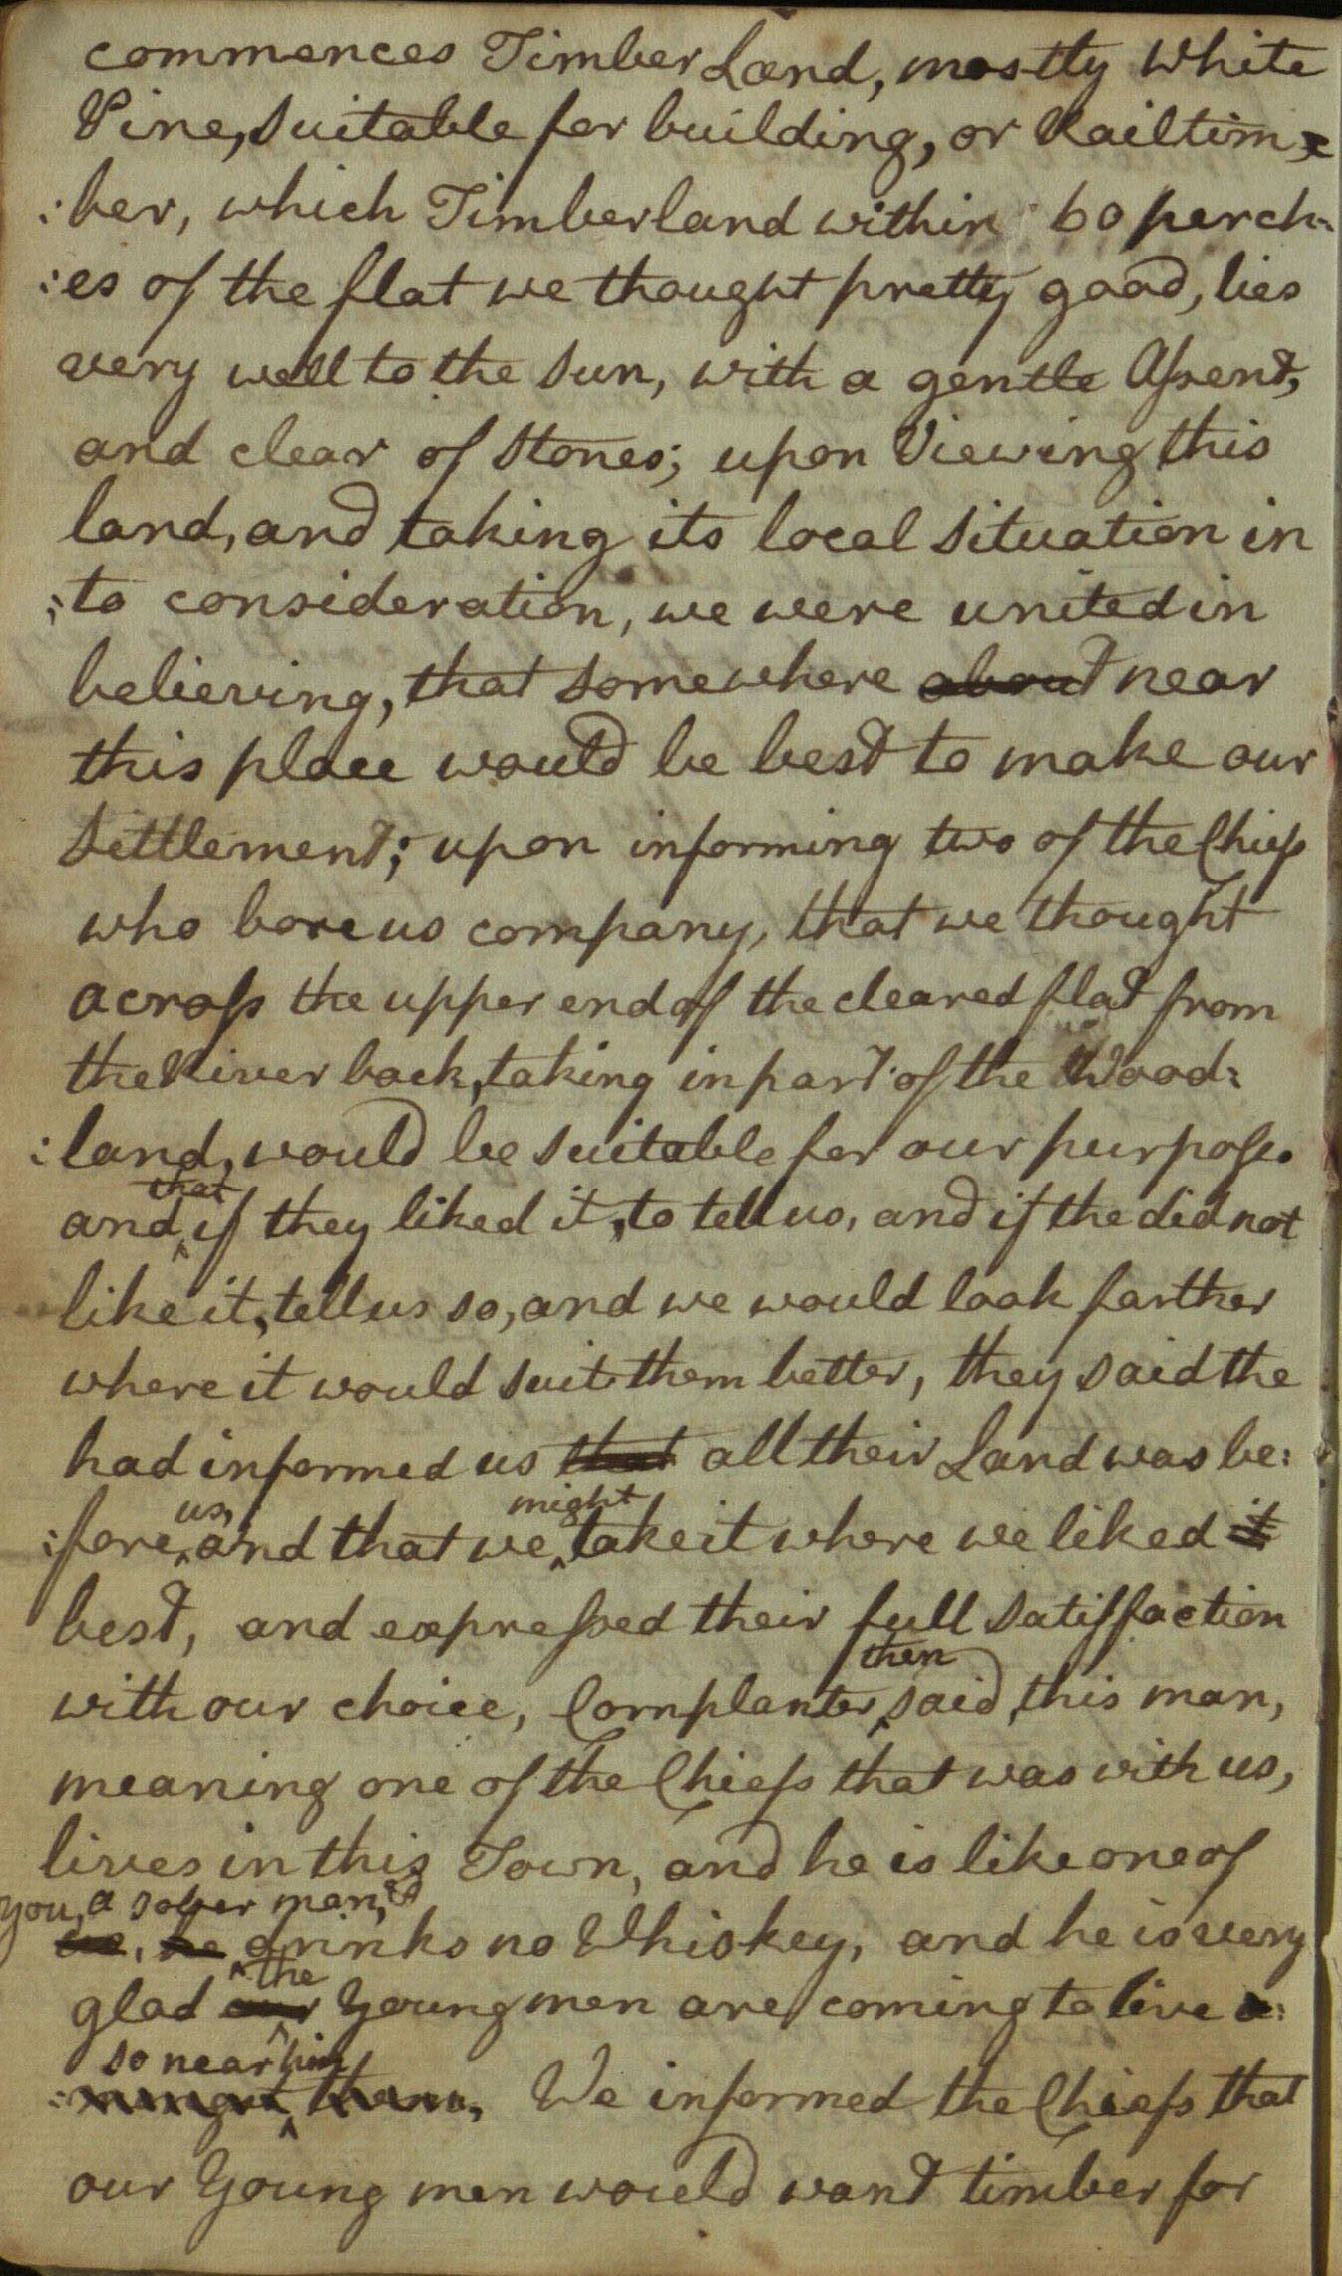 commences Timber Land, mostly White
Pine, suitable for building, or Railtim=
:ber, which Timberland within 60 perch=
:es of the flat we thought pretty good, lies
very well to the Sun, with a gentle Assent,
and clear of Stones; upon Viewing this
land, and taking its local Situation in
:to consideration, we were united in
believing, that somewhere about near
this place would be best to make our
Settlement; upon informing two of the Chiefs
who bore us company, that we thought
across the upper end of the cleared flat from
the River back, taking in part of the Wood=
:land, would be suitable for our purpose.
that
and if they liked it, to tell us, and if the did not
like it, tell us so, and we would look farther
where it would suit them better, they said the
had informed us that all their Land was be:
us, might
:fore, and that we take it where we liked it
best, and expressed their full Satisfaction
then
with our choice, Cornplanter said, this man,
meaning one of the Chiefs that was with us,
lives in this Town, and he is like one of
you, a sober man, &
us, he drinks no Whiskey, and he is very
the
glad our Young men are coming to live a:
so near him
:mongst them, We informed the Chiefs that
our Young men would want timber for